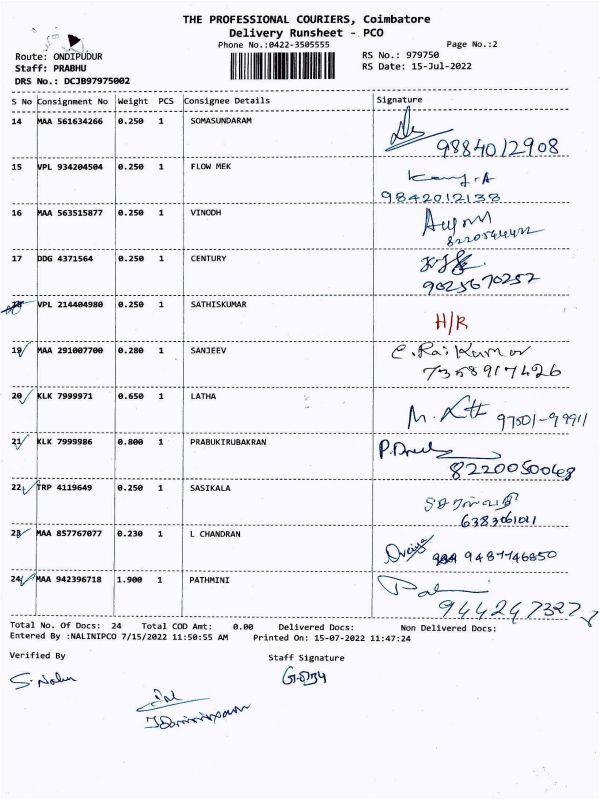 THE PROFESSIONAL COURIERS, Coimbatore
Delivery Runsheet - PCO
Phone No.:0422-3505555 Page No.:2
Route: ONDIPUDUR RS No.: 979750
Staff: PRABHU RS Date: 15-Jul-2022
DRS No.: DCJB97975002
S No Consignment No Weight PCS Consignee Details Signature
14 MAA 561634266 0.250 1 SOMASUNDARAM
9884012908
15 VPL 934204504 0.250 1 FLOW MEK
9842012138
16 MAA 563515877 0.250 1 VINODH
17 DDG 4371564 0.250 1 CENTURY
9025670252
18 VPL 214404980 0.250 1 SATHISKUMAR
H/R
19 MAA 291007700 0.280 1 SANJEEV C. Raj Kumar
7358917426
20 KLK 7999971 0.650 1 LATHA
97501-99911
21 KLK 7999986 0.800 1 PRABUKIRUBAKRAN
8220050068
22 TRP 4119649 0.250 1 SASIKALA
6383061011
23 MAA 857767077 0.230 1 L CHANDRAN
9487746850
24 MAA 942396718 1.900 1 PATHMINI
9442473277
Total No. Of Docs: 24 Total COD Amt: 0.00 Delivered Docs: Non Delivered Docs:
Entered By :NALINIPCO 7/15/2022 11:50:55 AM Printed On: 15-07-2022 11:47:24
Verified By Staff Signature